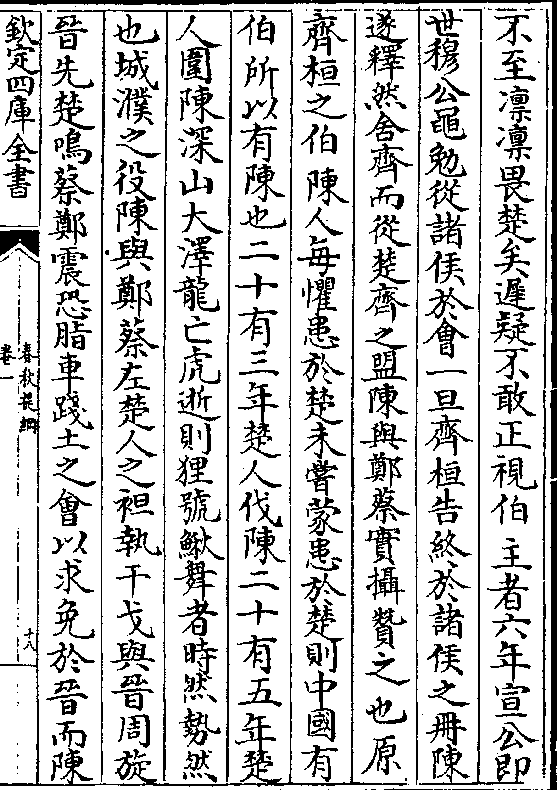 不至凛凛畏楚矣遲疑不敢正視伯主者六年宣公即
世穆公黽勉從諸侯於會一旦齊桓告終於諸侯之冊陳
遂釋然舍齊而從楚齊之盟陳與鄭蔡實攝贊之也原
齊桓之伯陳人每懼患於楚未嘗蒙患於楚則中國有
伯所以有陳也二十有三年楚人伐陳二十有五年楚
人圍陳深山大澤龍亡虎逝則狸號鰍舞者時然勢然
也城濮之役陳與鄭蔡左楚人之袒執干戈與晉周旋
晉先楚鳴蔡鄭震恐脂車踐土之會以求免於晉而陳
欽定四庫全書
春秋提綱
卷一
十八